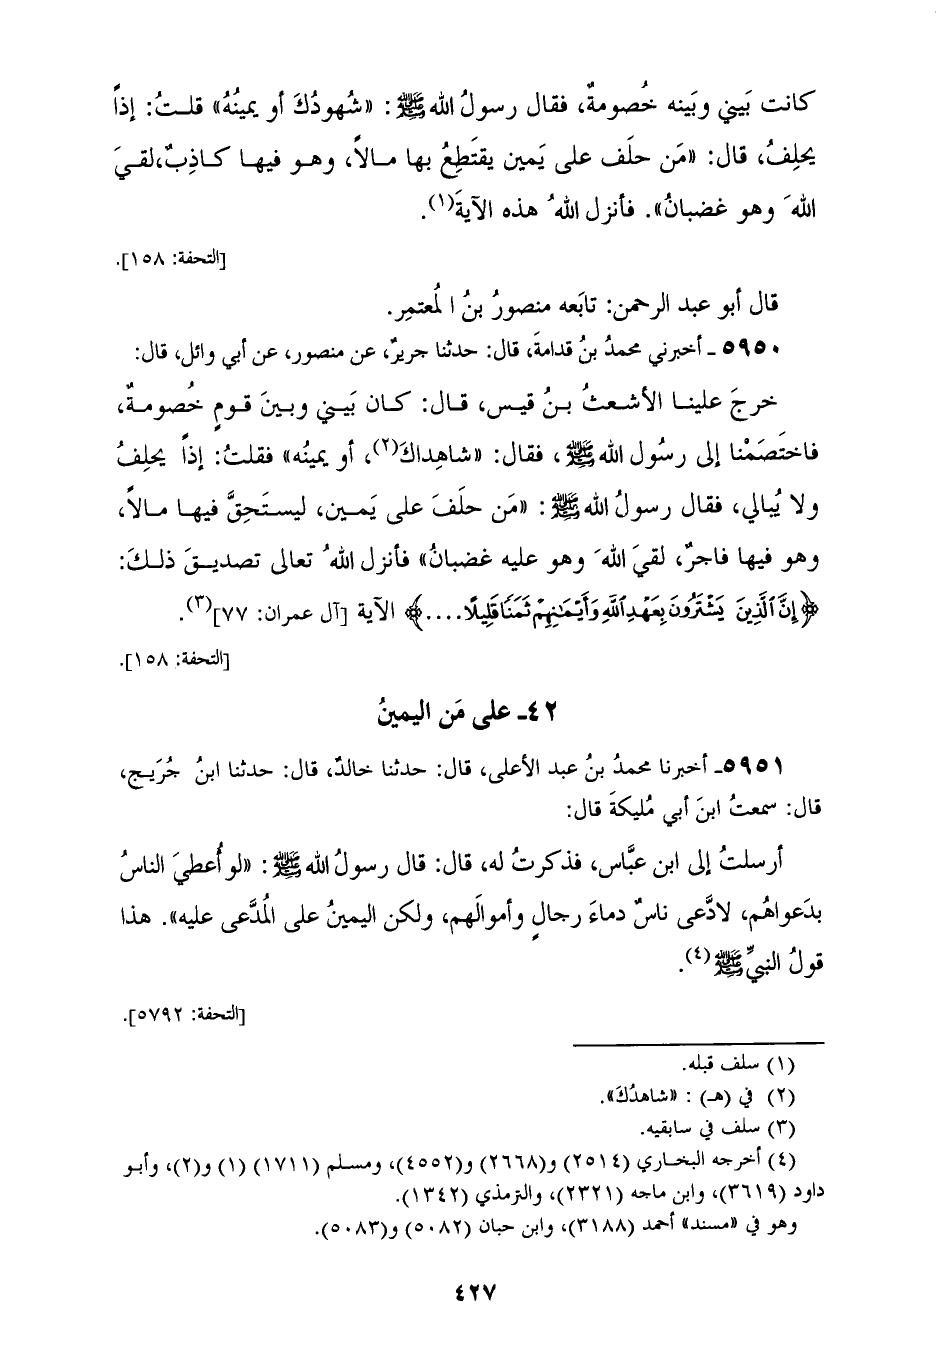 كانت بَيني وبَينه خُصومةٌ، فقال رسولُ الله ﷺ : «شُهودُكَ أو يمينُهُ» قلتُ: إذاً
يحلِفُ، قال: «مَن حلَف على يَمين يقتَطِعُ بها مالاً، وهو فيها كاذِبٌ،لقيَ
اللهَ وهو غضبانُ». فأنزل اللهُ هذه الآيةَ(١).
[التحفة: ١٥٨].
قال أبو عبد الرحمن: تابَعه منصورُ بنُ المُعتمِر.
٥٩٥٠ ـ أخبرني محمدُ بنُ قدامةَ، قال: حدثنا جريرٌ، عن منصور، عن أبي وائل، قال:
خرجَ علينا الأشعثُ بنُ قيس، قال: كان بَيني وبينَ قومٍ خُصومةٌ،
فاختَصَمْنا إلى رسُول الله ﷺ ، فقال: «شاهِداكَ(٢)، أو يمينُه» فقلتُ: إذاً يحلِفُ
ولا يُبالي، فقال رسولُ الله ﷺ : «مَن حلَفَ على يَمين، ليستَحِقَّ فيها مالاً،
وهو فيها فاجرٌ، لقيَ اللهَ وهو عليه غضبانُ» فأنزل اللهُ تعالى تصديقَ ذلكَ:
﴿إِنَّ ٱلَّذِينَ يَشْتَرُونَ بِعَهْدِ ٱللَّهِ وَأَيْمَٰنِهِمْ ثَمَنًا قَلِيلًا....﴾ الآية [آل عمران: ٧٧](٣).
[التحفة: ١٥٨].
٤٢ـ على مَن اليمينُ
٥٩٥١ـ أخبرنا محمدُ بنُ عبد الأعلى، قال: حدثنا خالدٌ، قال: حدثنا ابنُ جُرَيج،
قال: سمعتُ ابنَ أبي مُليكةَ قال:
أرسلتُ إلى ابن عبَّاس، فذكرتُ له، قال: قال رسولُ الله ﷺ : «لو أُعطيَ الناسُ
بدَعواهُم، لادَّعى ناسٌ دماءَ رجالٍ وأموالَهم، ولكن اليمينُ على المُدَّعى عليه». هذا
قولُ النبيِّ ﷺ (٤).
[التحفة: ٥٧٩٢].
(١) سلف قبله.
(٢) في (هـ) : «شاهدُكَ».
(٣) سلف في سابقيه.
(٤) أخرجه البخاري (٢٥١٤) و(٢٦٦٨) و(٤٥٥٢)، ومسلم (١٧١١) (١) و(٢)، وأبو
داود (٣٦١٩)، وابن ماجه (٢٣٢١)، والترمذي (١٣٤٢).
وهو في «مسند» أحمد (٣١٨٨)، وابن حبان (٥٠٨٢) و(٥٠٨٣).
٤٢٧